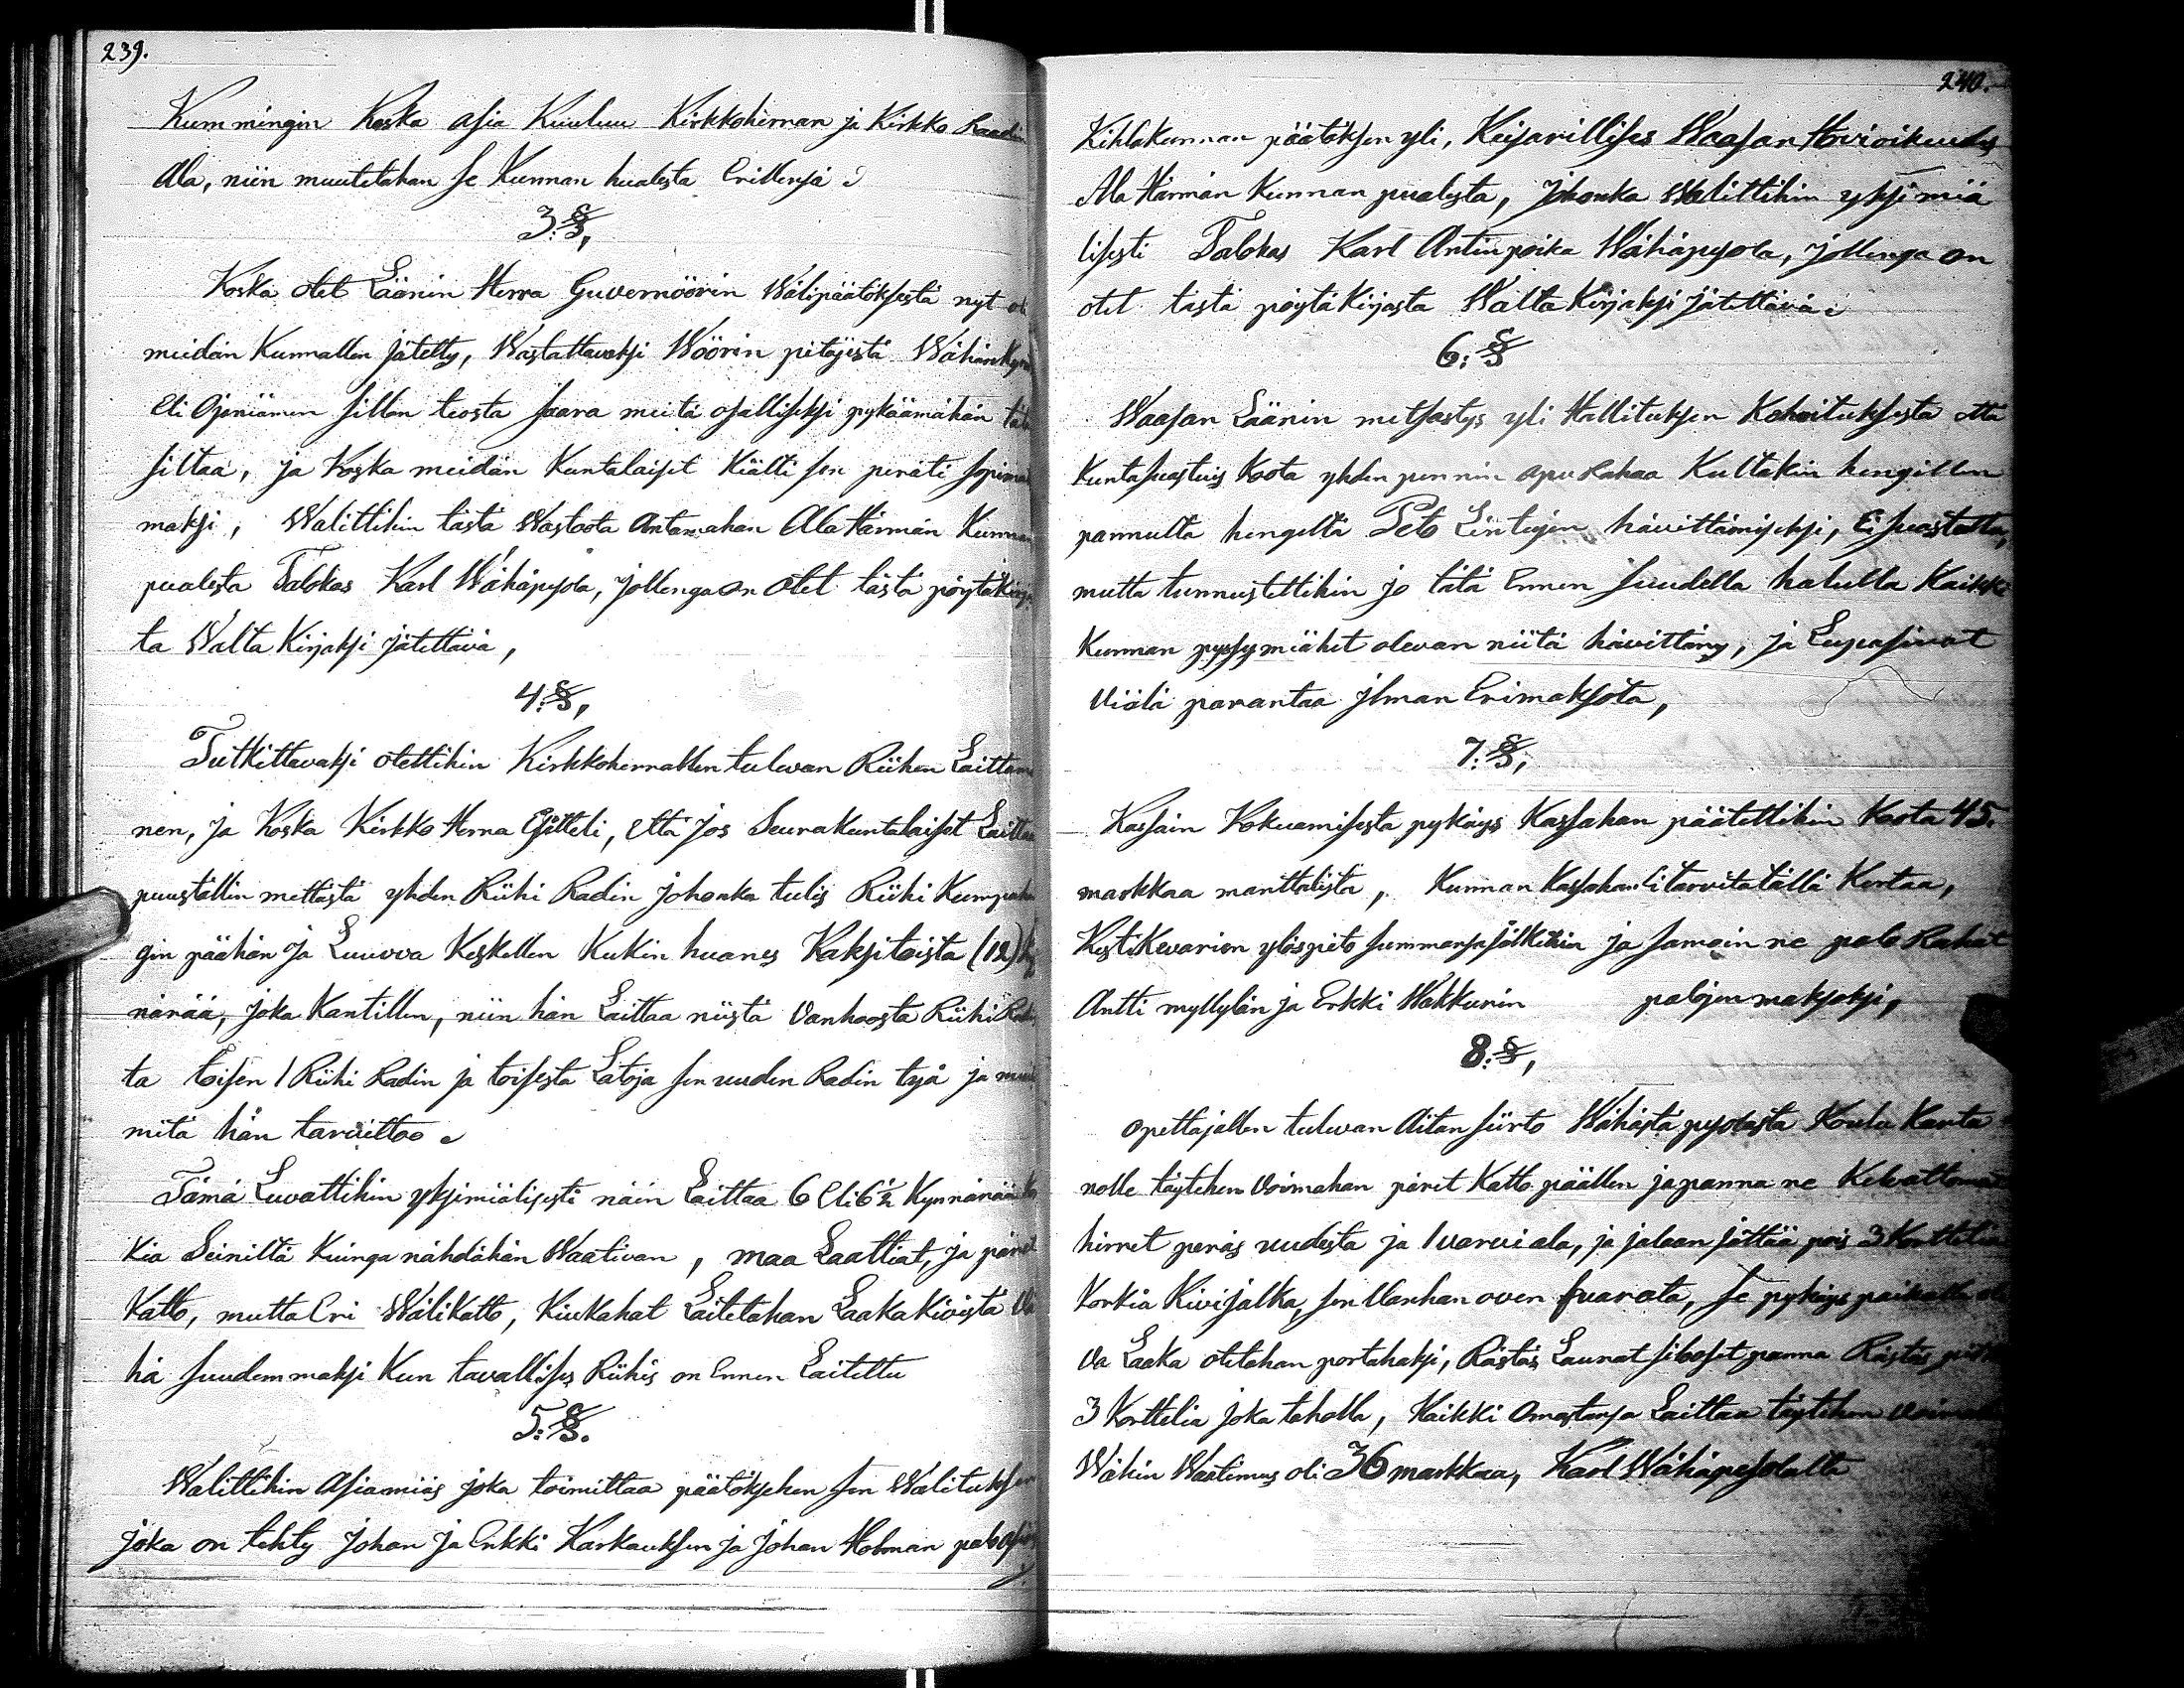 239.
Kummingin Koska asia Kuuluu Kirkkoherran ja Kirkko Raadin
Ala, niin muutetahan se Kunnan hualesta Erillensä
3:§,
Koska otet Läänin Herra Guvernöörin Wälipäätöksestä nyt
meidän Kunnallen jätetty, Wastattavaksi Wöörin pitäjestä
Eli Ojaniämen sillan teosta saara meitä osalliseksi pykäämähän
siltaa, ja Koska meidän Kuntalaiset Kiälti sen peräti
maksi, Walittihin tästä Wastoota Antamahan Ala Härmän Kunnan
pualesta Talokas Karl Wähäpesola, jollenga on Otet tästä pöytäkirjas
ta Walta Kirjaksi jätettävä,
4:§,
Tutkittavaksi otettihin Kirkkoherrallen tulevan Riihen
nen, ja Koska Kirkko Herra Esitteli, Että jos Seurakuntalaiset
puustellin mettästä yhden Riihi Radin johonka tulis Riihi
gin päähän ja Luuvva Keskellen Kukin huanes Kaksitoista (12)
närää, joka Kantillen, niin hän Laittaa niistä Vanhoosta Riihi
ta toisen 1 Riihi Radin ja toisesta Latoja sen uuden Radin tyä ja
mitä hän tarvittoo
Tämä Luvattihin yksimiälisesti näin Laittaa 6 Eli 6½ Kynnärää
kia Seiniltä Kuinga nähdähän Waativan, maa Laattiat, ja päret
Katto, mutta Eri Wälikatto, Kiukahat Laitetahan Laaka Kivistä
hä suudemmaksi Kun tavallises Riihis on Ennen Laitettu
5:§.
Walittihin Asiamiäs joka toimittaa päätöksehen sen Walituksen
joka on tehty Johan ja Erkki Karkauksen ja Johan Holman
240.
Kihlakunnan päätöksen yli, Keisarillises Waasan Hovioikeudes
Ala Härmän Kunnan pualesta, Johonka Walittihin yksi miä
lisesti Talokas Karl Antinpoika Wähäpesola, jollenga on
otet tästä pöytäkirjasta Walta Kirjaksi jätettävä
6:§
Waasan Läänin metsästys yli Hallituksen Kehoituksesta että
Kunta suastuis Koota yhden pennin apu Rahaa Kultakin hengillen
pannulta hengeltä Peto Lintujen hävittämiseksi, Ei suastuttu,
mutta tunnustettihin jo tätä Ennen suudella halulla Kaikki
Kunnan pyssymiähet olevan niitä hävittäny, ja Lupasivat
Viälä parantaa jlman Erimaksota,
7:§,
Kassain Kokuamisesta pykäys Kassahan päätettihin Koota 45.
markkaa manttalista, Kunnan Kassahan Ei tarvita tällä Kertaa,
KestiKevarien ylöspito summansa jälkehin ja samoin ne palo Rahat
Antti myllylän ja Erkki Wakkurin palojen maksoksi,
8:§,
Opettajallen tulevan Aitan siirto Wähästä pesolasta Koulu Karta
nolle täytehen Voimahan päret Katto päällen ja panna ne Kelvattomat
hirret peräs uudesta ja 1 varvi ala, ja jalaan jättää pois 3 Korttelia
Korkia Kivijalka, sen Vanhan oven suarata, Se pykäys paikalla
va Laaka otetahan portahaksi, Rästäs Launat panna Rästäs
3 Korttelia joka taholla, Kaikki Omastansa Laittaa täytehen
Wähin Waatimus oli 36 markkaa, Karl Wähäpesolalta